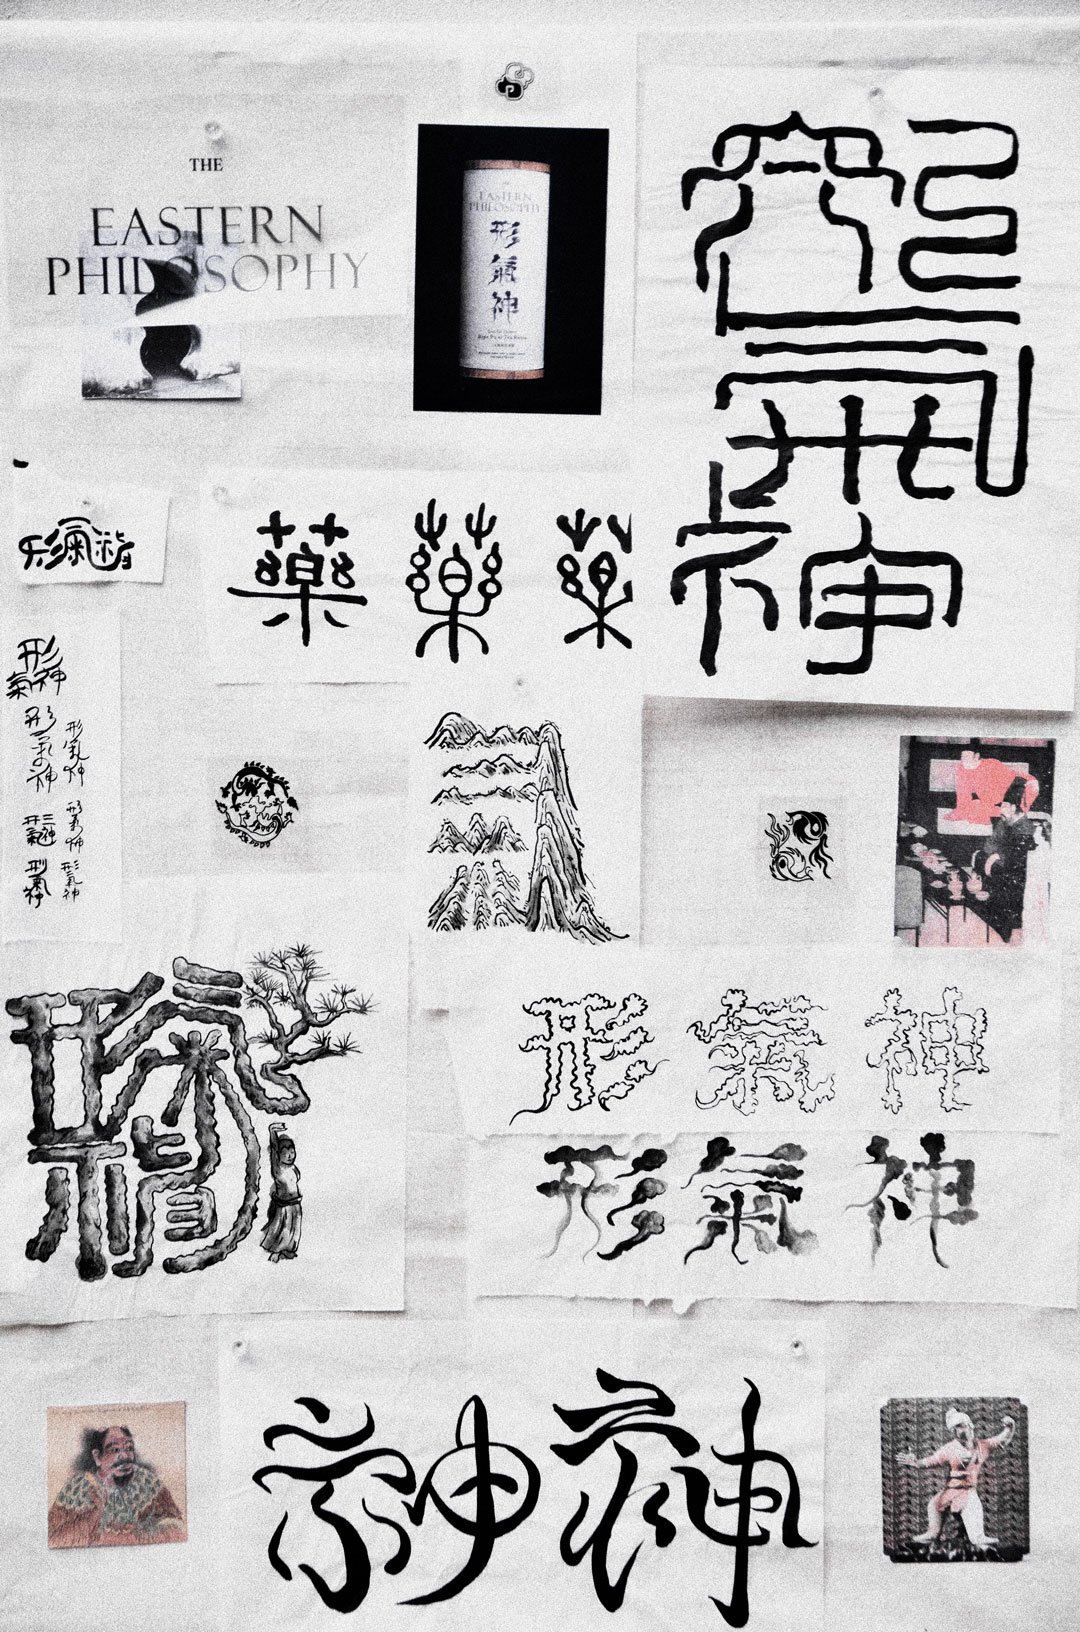 THE
EASTERN
PHILOSOPHY
EASTERN
PHILOSOPHY
形
氣
神
形氣神
藥 藥 藥
形氣神
形
氣神
形氣神
形氣神
形氣神
形氣神
形氣神
形氣神
形氣神
形 氣 神
形 氣 神
神 神